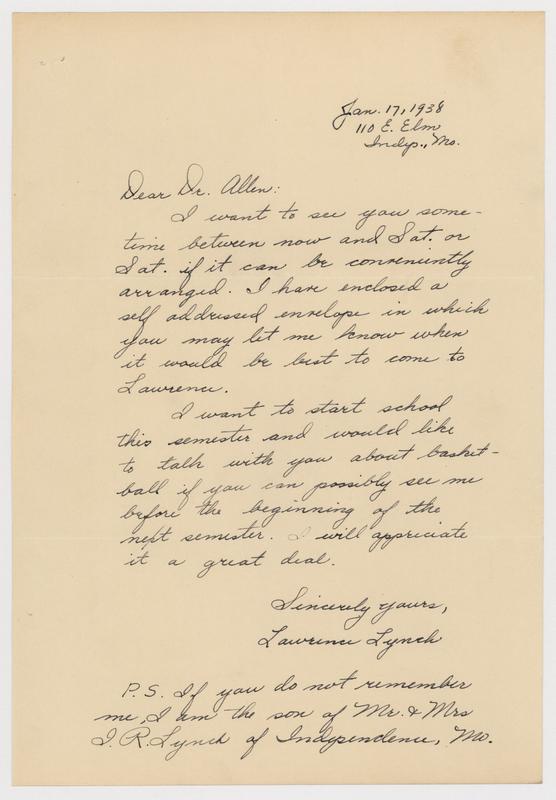 Jan. 17, 1938
110 E. Elm
Indep., Mo.
Dear Dr. Allen:
I want to see you some-
time between now and Sat. or
Sat. if it can be conveniently
arranged. I have enclosed a
self addressed envelope in which
you may let me know when
it would be best to come to
Lawrence.
I want to start school
this semester and would like
to talk with you about basket-
ball if you can possibly see me
before the beginning of the
next semester. I will appriciate
it a great deal.
Sincerely yours,
Lawrence Lynch
P.S. If you do not remember
me, I am the son of Mr. & Mrs
I. R. Lynch of Independence, Mo.